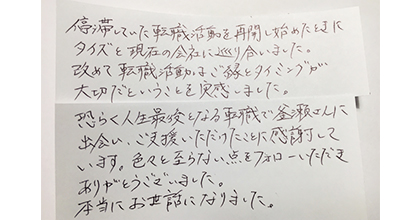 停滞していた転職活動を再開し始めたときに
タイズと現在の会社に巡り合いました。
改めて転職活動はご縁とタイミングが
大切だということを実感しました。
恐らく人生最後となる転職で釜瀬さんに
出会い、ご支援いただけたことに感謝して
います。色々と至らない点をフォローいただき
ありがとうございました。
本当にお世話になりました。